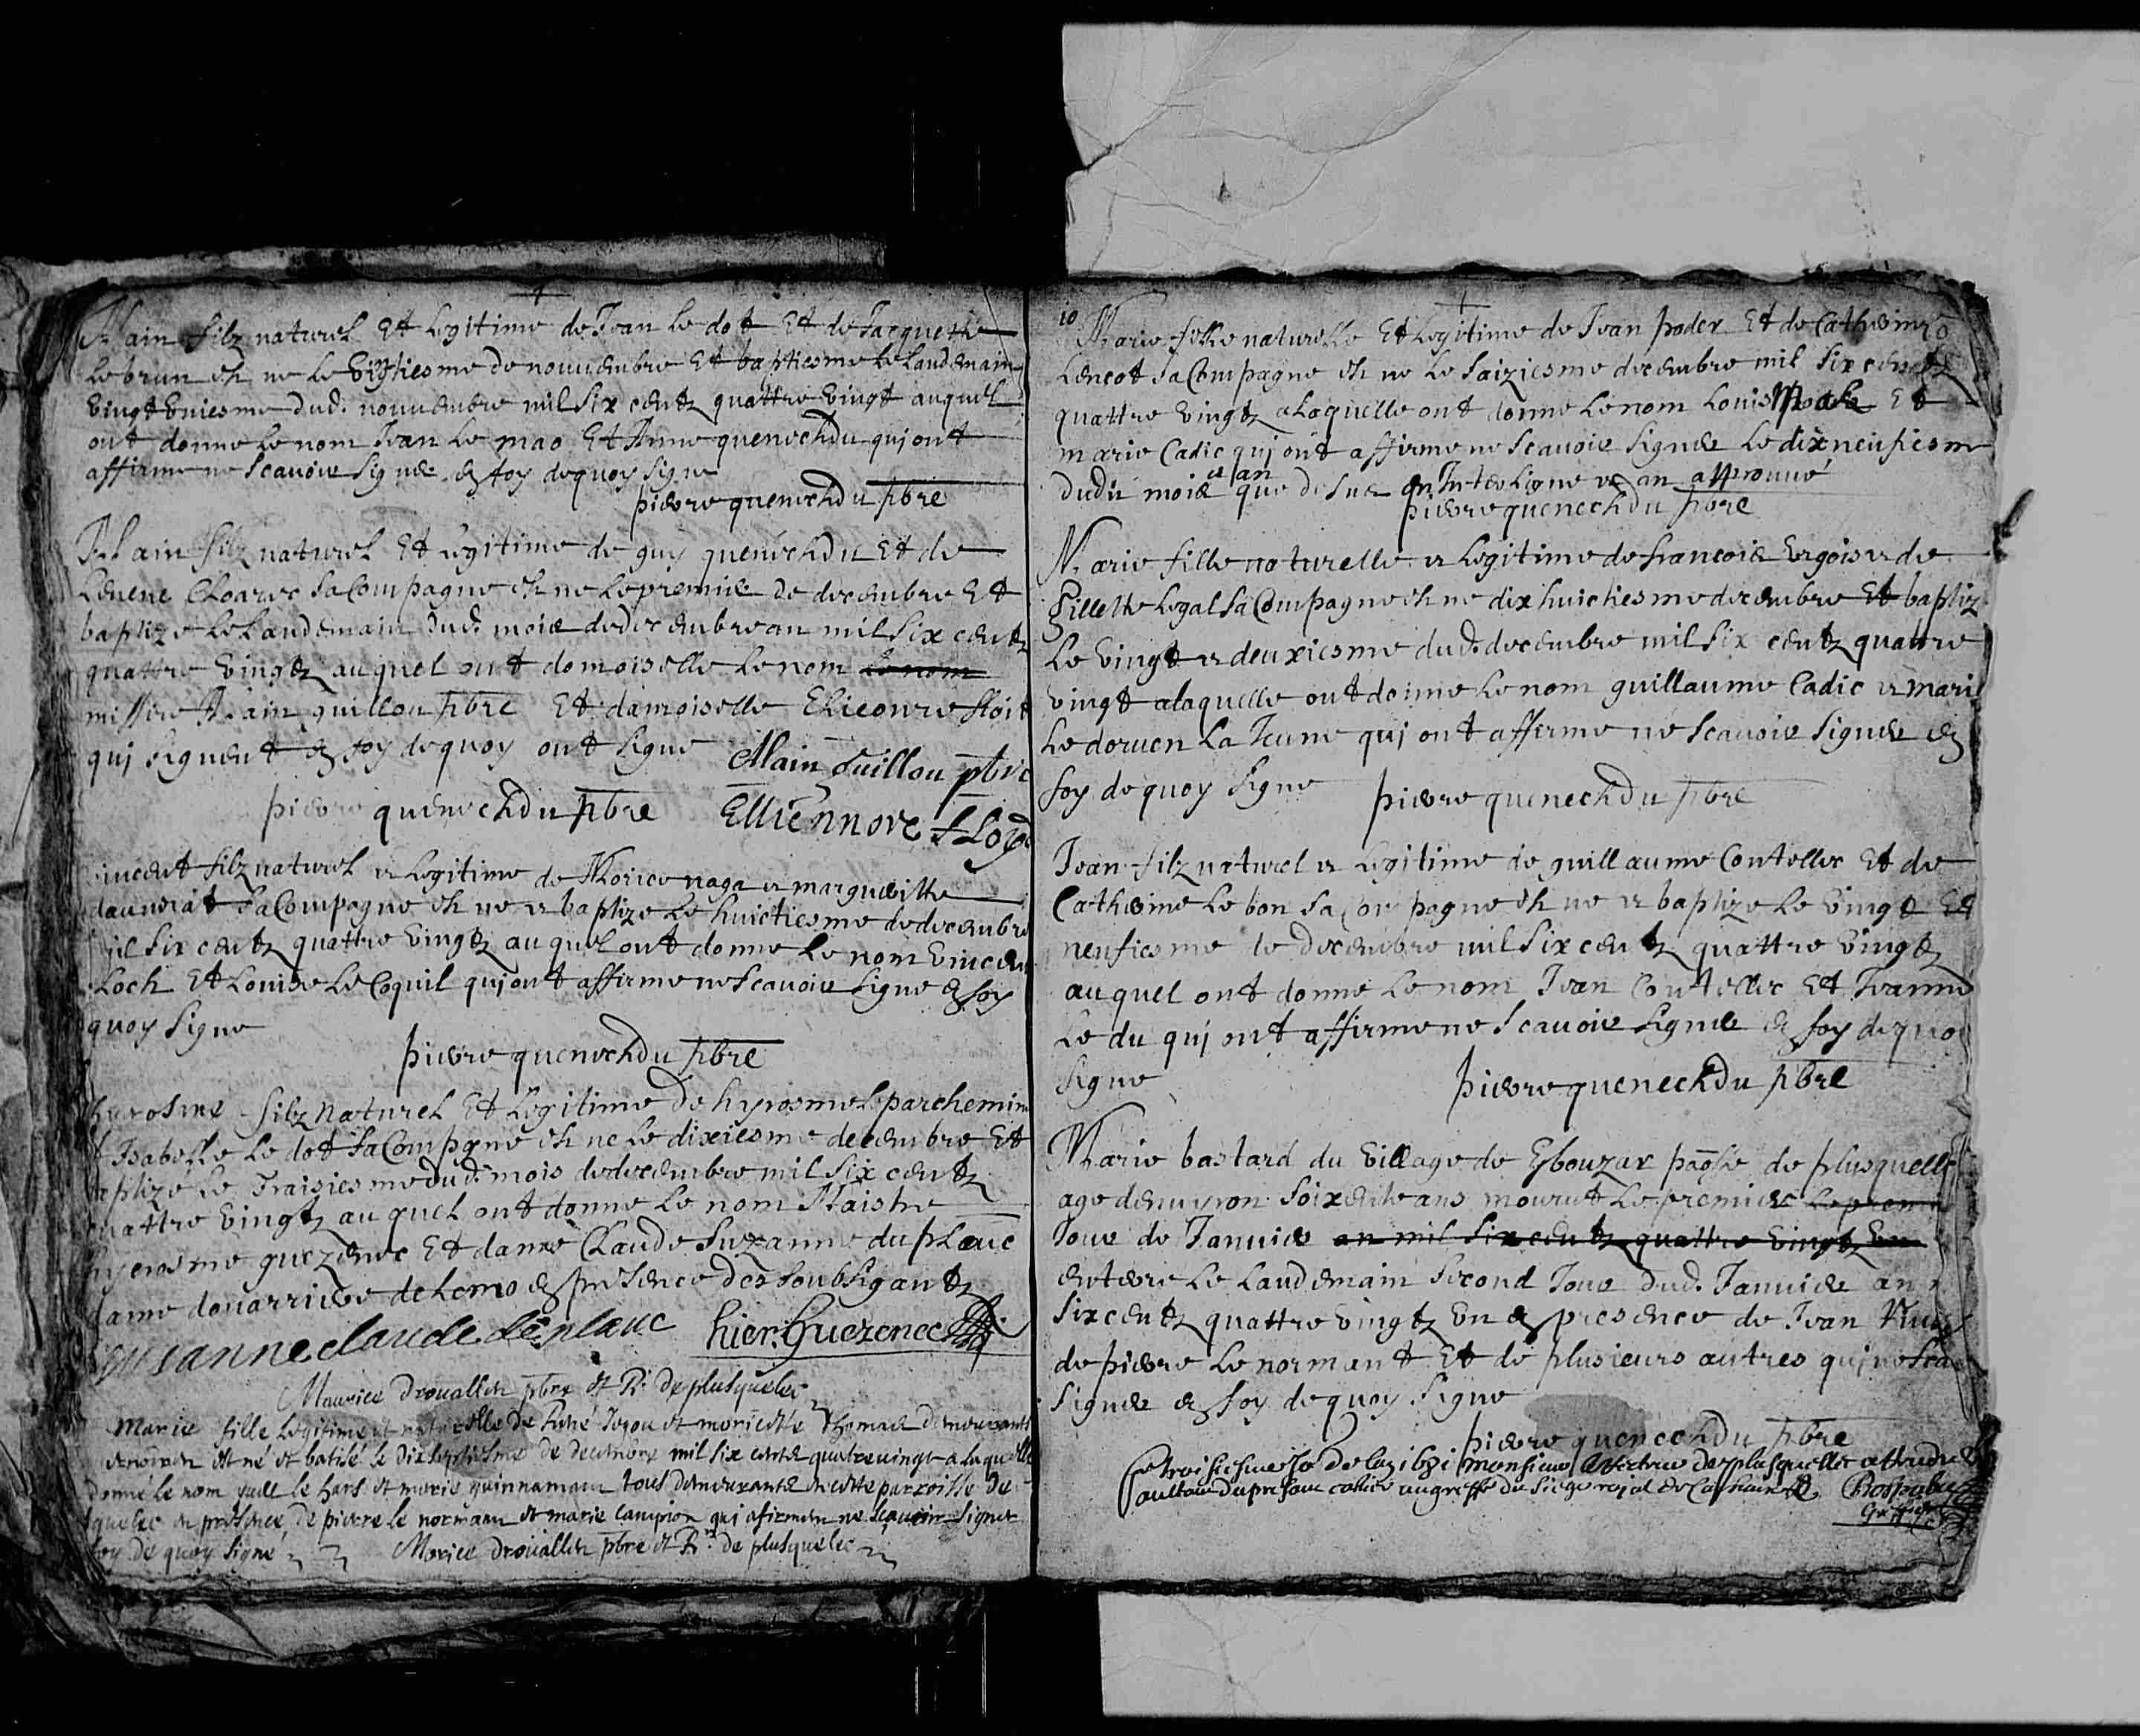 Alain filz naturel Et legitime de Jean le dot Et de Jacquette
Lebrun est ne le Vigtiesme de nouuembre Et baptiesme le Landemain
Vingt Vniesme dud. nouuembre mil six centz quattre Vingt auquel
ont donne le nom Jvan Le mao Et Anne quenechdu qui ont
affirme ne scauoir signer en foy dequoy signe
pierre quenechdu pbre
Alain filz naturel Et legitime de guy quenechdu Et de
Leuene Cloarec sa Compagne est ne le premier de decembre Et
baptize le Landemain dud. mois de decembre an mil six centz
quattre Vingtz auquel ont domoiselle le nom le nom
missire Alain guillou pbre Et damoiselle
qui signent en foy dequoy ont signe Allain Guillou pbre
pierre quenechdu pbre Elliennore
incent filz naturel et legitime de Morice naga et margueritte
sa Compagne est ne et baptize le huictiesme de decembre
mil six centz quattre Vingtz auquel ont donne Le nom Vincen
Loch Et Louise Le Coquil qui ont affirme ne scauoir signe en foy
quoy signe
pierre quenechdu pbre
hierosme filz naturel Et legitime de hyrosme Le parchemin
Et Isabelle le dot sa Compagne est ne le dixiesme decembre Et
baptize le Traisiesme dud. mois de decembre mil six centz
quattre Vingtz auquel ont donne le nom Maistre
hyerosme guezenec Et dame Claude Suzanne du plauc
dame douarriere de en presence des soubsigantz
Susanne claude hier: Guezenec
Maurice drouallen pbre et Rr de plusquelec
Marie fille legitime et naturelle de et moricette Thomas demeurants
est né et batisé le dixseptiesme de decembre mil six cents quatre vingt a laquelle
donné le nom et marie quinnaman tous demeurants en cette parroisse de
quelec en presence de pierre le normann et marie campion qui afirment ne scauoir signer
foy de quoy signe Morice drouallen pbre et Rr de plusquelec
10
Marie fille naturelle Et legitime de Jvan poder Et de Catherinne
Lencot sa Compagne est ne Le saiziesme decembre mil six centz
quattre Vingtz a laquelle ont donne le nom Louis Et
marie Cadic qui ont affirme ne scauoir signer Le dix neufiesme
dudit mois et an que desus en Interligne et an approuué
pierre quenechdu pbre
Marie fille naturelle et legitime de francois Vrgois et de
Gillette Legal sa Compagne est ne dix huictiesme decembre Et baptiz
Le Vingt et deuxiesme dud. decembre mil six centz quattre
vingt a laquelle ont donne Le nom guillaume Cadic et mari
Le doruen La Jeune qui ont affirme ne scauoir signer en
foy de quoy signe pierre quenechdu pbre
Jvan filz naturel et legitime de guillaume Contellec Et de
Catherine Le bon sa Compagne est ne et baptize Le Vingt Et
neufiesme de decembre mil six centz quattre Vingtz
auquel ont donne Le nom Jvan Contellec Et Jvanne
Le du qui ont affirme ne scauoir signer en foy de quoy
signe
pierre quenechdu pbre
Marie bastard du Village de Kbouzar de plusquelle
age denuyron soixente ans mourut le premier le premi
Jour de Januier an mil six centz quattre Vingtz Vn
enterre Le Landemain second Jour dud. Januier an
six centz quattre Vingtz Vn en presence de Jvan
de pierre Le normant Et de plusieurs autres qui ne sca
signer en foy de quoy signe
pierre quenechdu pbre
monsieur de plusquellec
cahier au greffe du siege royal de Carhaix